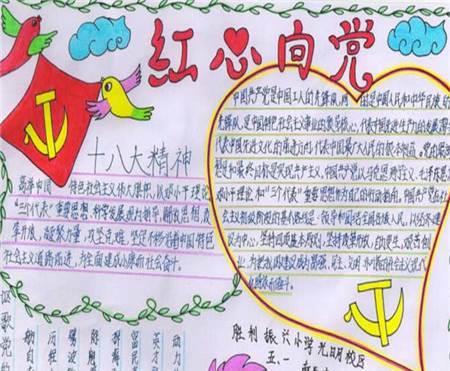 红心向党
十八大精神
高举中国特色社会主义伟大旗帜，以邓小平理论
"三个代表"重要思想、科学发展观为指导，解放思想，改
革开放，凝聚力量，攻坚克难，坚定不移沿着中国特色
社会主义道路前进，为全面建成小康而社会奋斗。
中国共产党是中国工人的先锋队，同时是中国人民和中华民族的
先锋队，是中国特色社会主义事业的领导核心，代表中国先进生产力的发展
代表中国先进文化的前进方向，代表中国最广大人民的根本利益。党的最高
想和最终目标是实现共产主义。中国共产党以马克思列宁主义、毛泽东思
邓小平理论和"三个代表"重要思想作为自己的行动指南。中国共产党在社
会主义初级阶段的基本路线是：领导和团结全国各族人民，以经济建
设为中心，坚持四项基本原则，坚持改革开放，自力更生，艰苦创
业，为把我国建设成为富强、民主、文明、和谐的社会主义现代
化国家而奋斗。
讴歌党的
胜利振兴小学光明校区
五、一